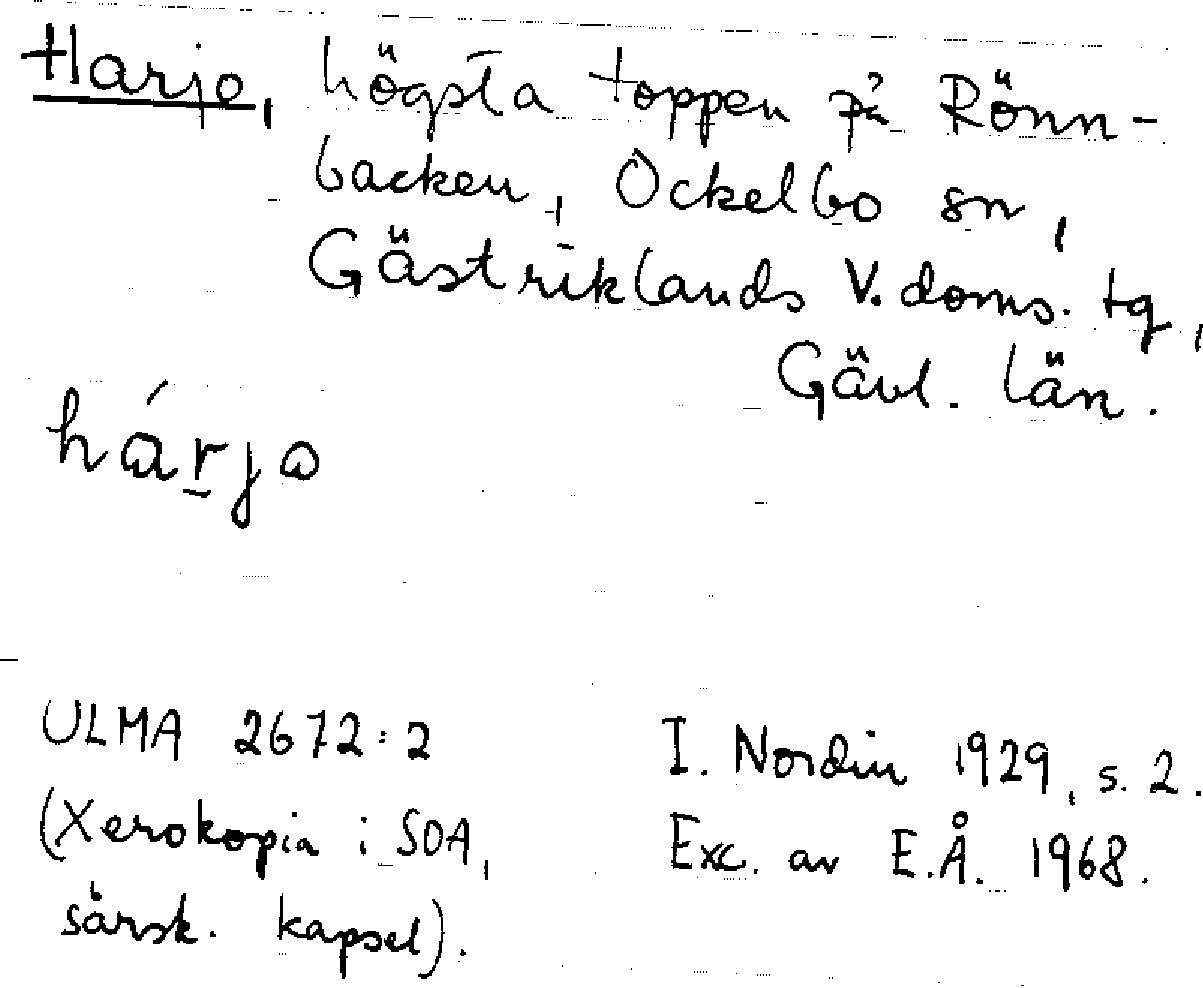 Harjo, högsta toppen på Rönn-
backen, Ockelbo sn,
Gästriklands V. doms. tg,
Gävl. län.
hárjo
ULMA 2672:2
(Xerokopia i SOA,
särsk. kapsel).
I. Nordin 1929, s. 2.
Exc. av E.Å. 1968.